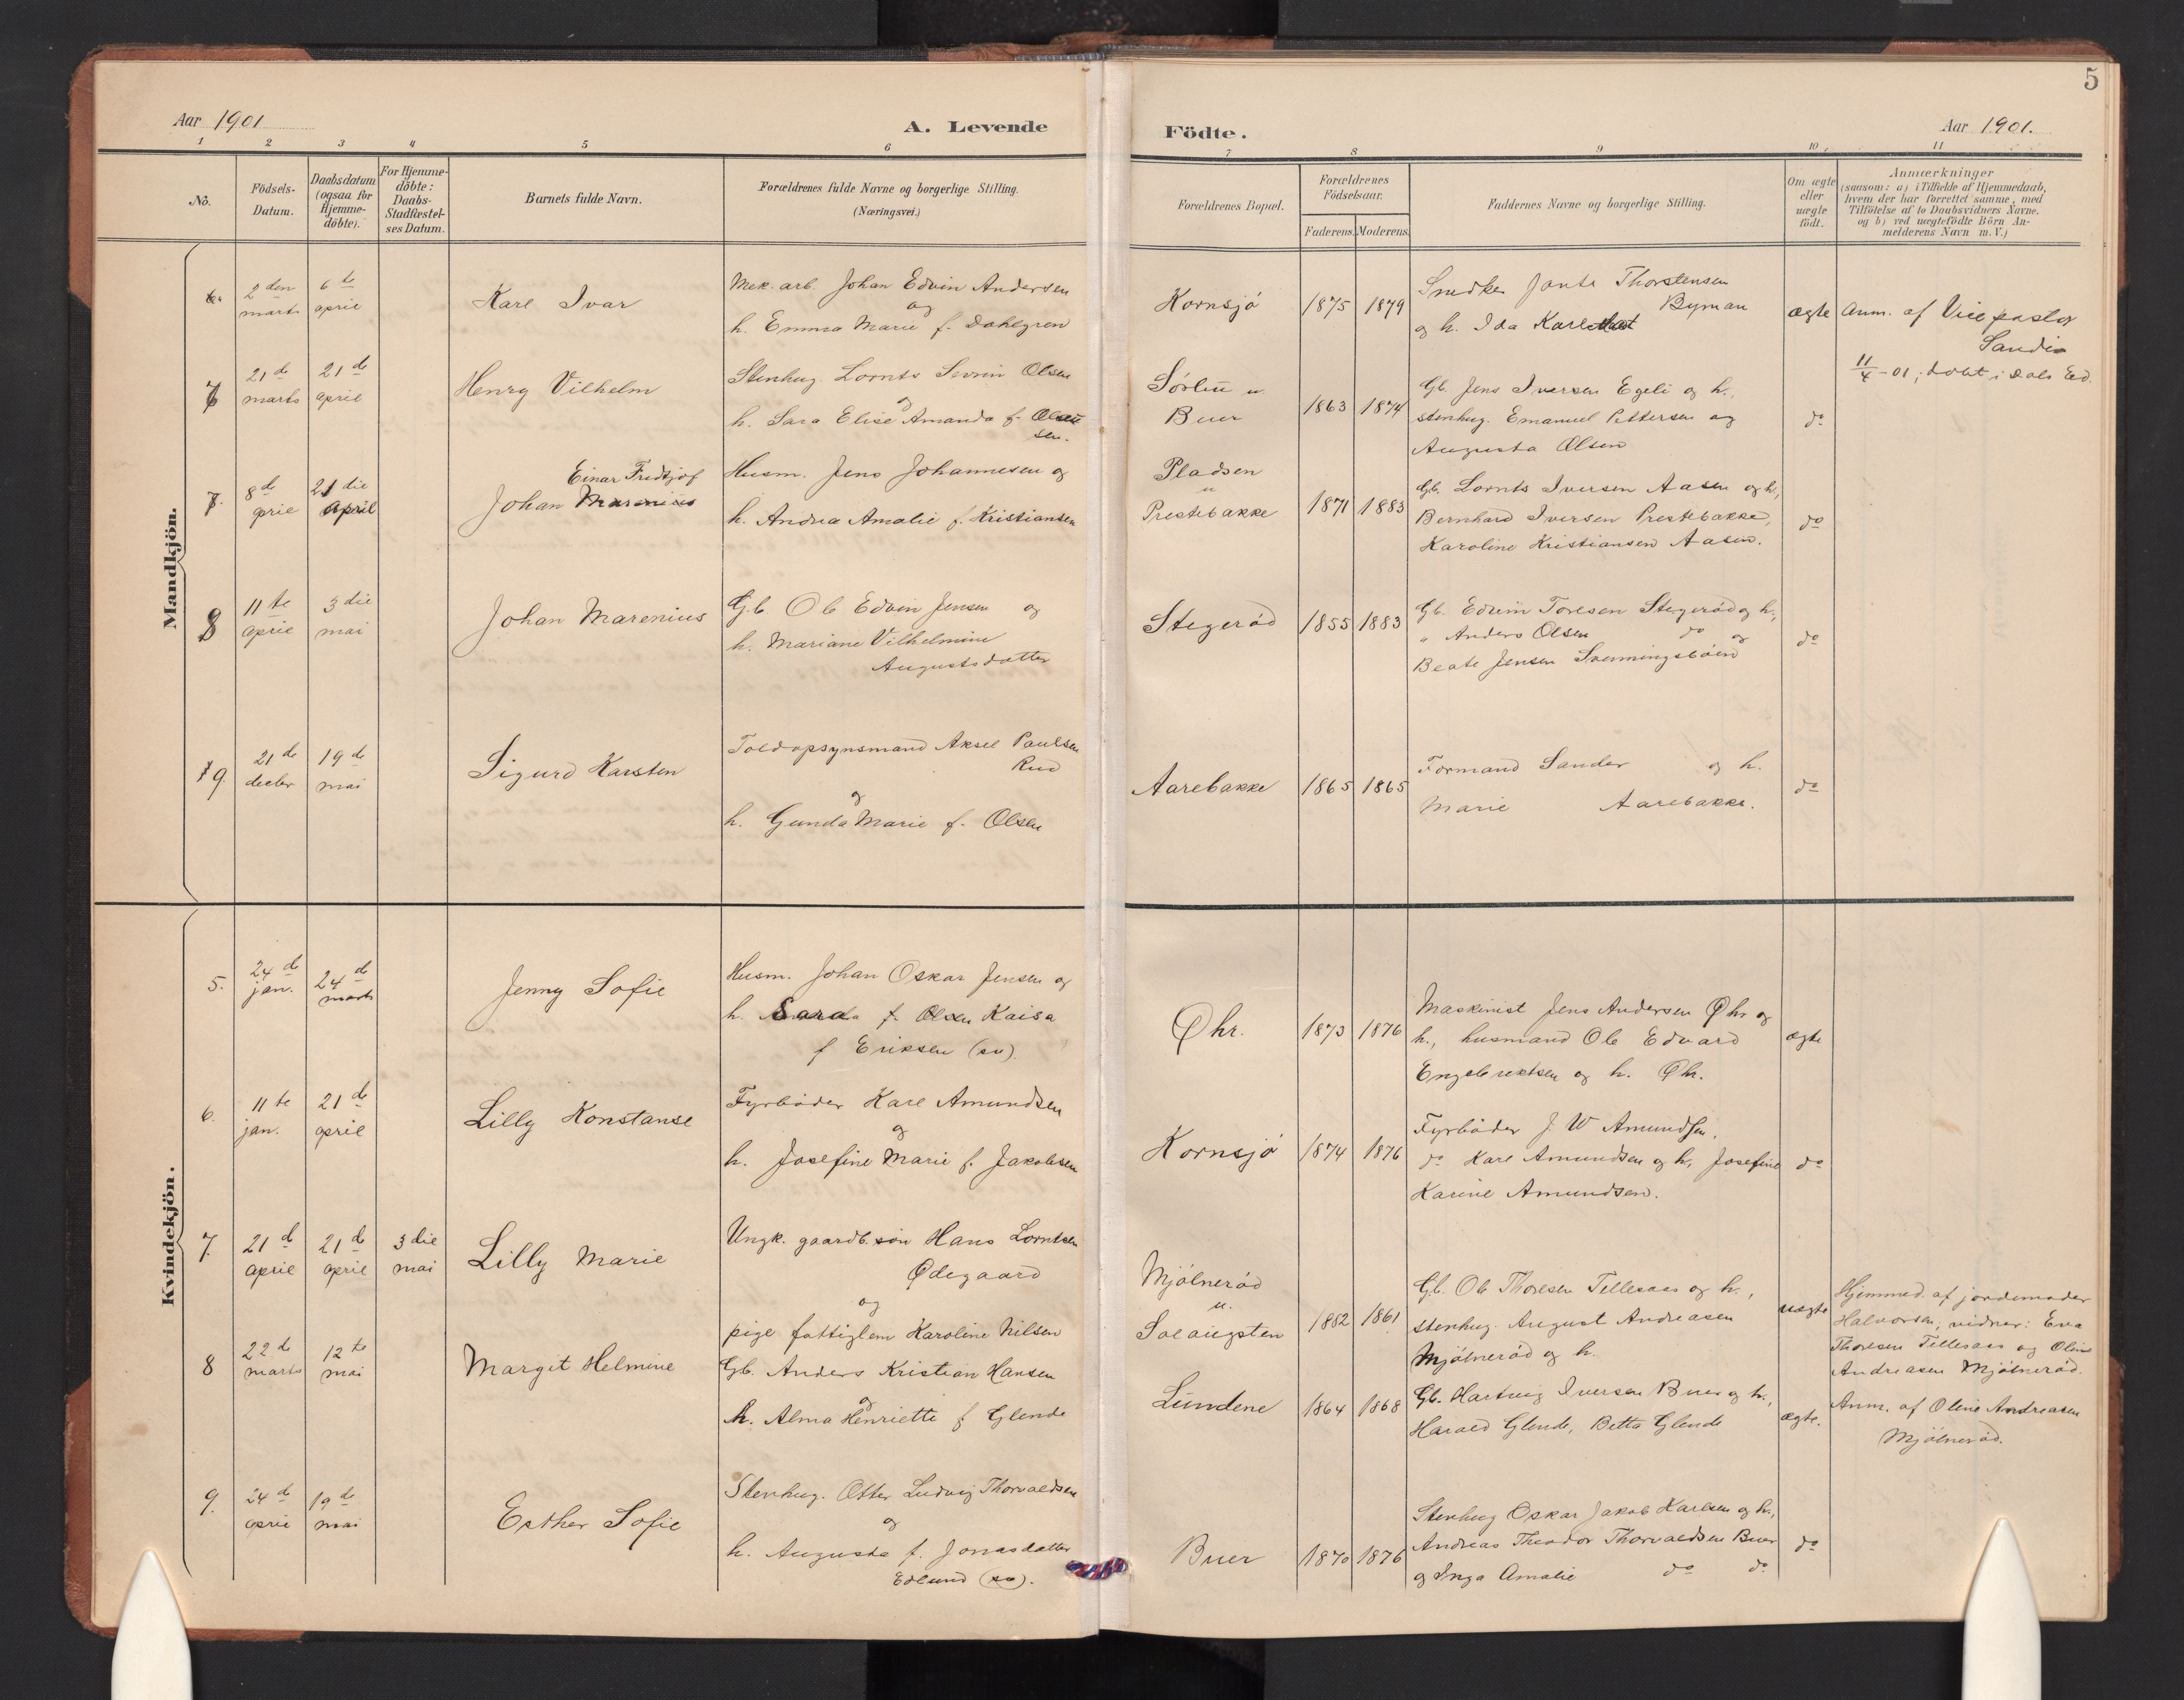 5
Aar 1901
A. Levende
Födte.
Aar 1901.
1 2 3 4 5 6 7 8 9 10 11
No.
Födsels-
Datum.
Daabsdatum
(ogsaa for
Hjemme-
döbte).
For Hjemme-
döbte:
Daabs-
Stadfæstel-
ses Datum.
Barnets fulde Navn.
Forældrenes fulde Navne og borgerlige Stilling.
(Næringsvei.)
Forældrenes Bopæl.
Forældrenes
Födselsaar.
Faderens. Moderens.
Faddernes Navne og borgerlige Stilling.
Om ægte
eller
uægte
födt.
Anmærkninger
(saasom: a) i Tilfælde af Hjemmedaab,
hvem der har forrettet samme, med
Tilföielse af to Daabsvidners Navne.
og b) ved uægtefödte Börn An-
melderens Navn m.V.)
Mandkjön.
2den
marts
6te
april
Karl Ivar
Mek. arb. Johan Edvin Andersen
og
h. Emma Marie f. Dahlgren
Kornsjö
1875 1879
Thorstensen
Byman
og h. Ida
ægte
Anm. af Vicepastor
Sandin
11/4-01; döbt i Dals Ed.
21de
marts
21de
april
Henry Vilhelm
Stenhug. Lornts Sevrin Olsen
og
h. Sara Elise Amanda f. Olsen
Buer
1863 1874
Gb. Jens Iversen Egeli og h.,
stenhug. Emanuel Pettersen og
Augusta Olsen
do
7.
8de
april
21die
April
Einar Fridtjof
Johan Marenius
Husm. Jens Johannesen og
h. Andrea Amalie f. Kristiansen
Pladsen
u
Prestebakke
1871 1883
Gb. Lornts Iversen Aasen og h,
Bernhard Iversen Prestebakke,
Karoline Kristiansen Aasen.
do
8
11te
april
3die
mai
Johan Marenius
G.b Ole Edvin Jensen og
h. Mariane Vilhelmine
Augustsdatter
Stegeröd
1855 1883
Gb. Edvin Toresen Stegeröd og h,
" Anders Olsen do og
Beate Jensen Svenningsböen
do
9
21de
decbr
19de
mai
Sigurd Karsten
Toldopsynsmand Aksel Paulsen
Rud
og
h. Gunda Marie f. Olsen
Aarebakke
1865 1865
Formand Sander og h.
Marie Aarebakke.
do
Kvindekjön.
5.
24d
jan.
24d
marts
Jenny Sofie
Husm. Johan Oskar Jensen og
h. Sara f. Olsen Kaisa
f Eriksen (sv).
Øhr.
1873 1876
Maskinist Jens Andersen Øhr og
h., husmand Ole Edvard
Engebretsen og h. Øhr.
ægte
6.
11te
jan.
21de
april
Lilly Konstanse
Fyrböder Karl Amundsen
og
h. Josefine Marie f. Jakobsen
Kornsjö
1874 1876
Fyrböder J. W Amundsen,
do Karl Amundsen og h, Josefine
Karine Amundsen.
do
7.
21d
april
21d
april
3die
mai
Lilly Marie
Ungk. gaardb.sön Hans Lorntsen
Ødegaard
og
pige fattiglem Karoline Nilsen
Mjölneröd
u.
Solaugsten
1882 1861
Gb. Ole Thoresen Tellesaas og h.,
stenhug. August Andreasen
Mjölneröd og h.
uægte
Hjemmed. af jordemoder
Halvorsen, vidner: Eva
Thoresen Tellesaas og Oline
Andreasen Mjölneröd.
Anm. af Oline Andreasen
Mjölneröd.
8
22de
marts
12te
mai
Margit Helmine
Gb. Anders Kristian Hansen
og
h. Alma Henriette f Glende
Lundene
1864 1868
Gb. Hartvig Iversen Buer og h.,
Harald Glende, Betta Glende
ægte.
9.
24d
april
19de
mai
Esther Sofie
Stenhug. Otter Ludvig Thorvaldsen
og
h. Augusta f. Jonasdatter
Edlund (sv).
Buer
1870 1876
Stenhug Oskar Jakob Karlsen og h.,
Andreas Theodor Thorvaldsen Buer
og Inga Amalie do do
do